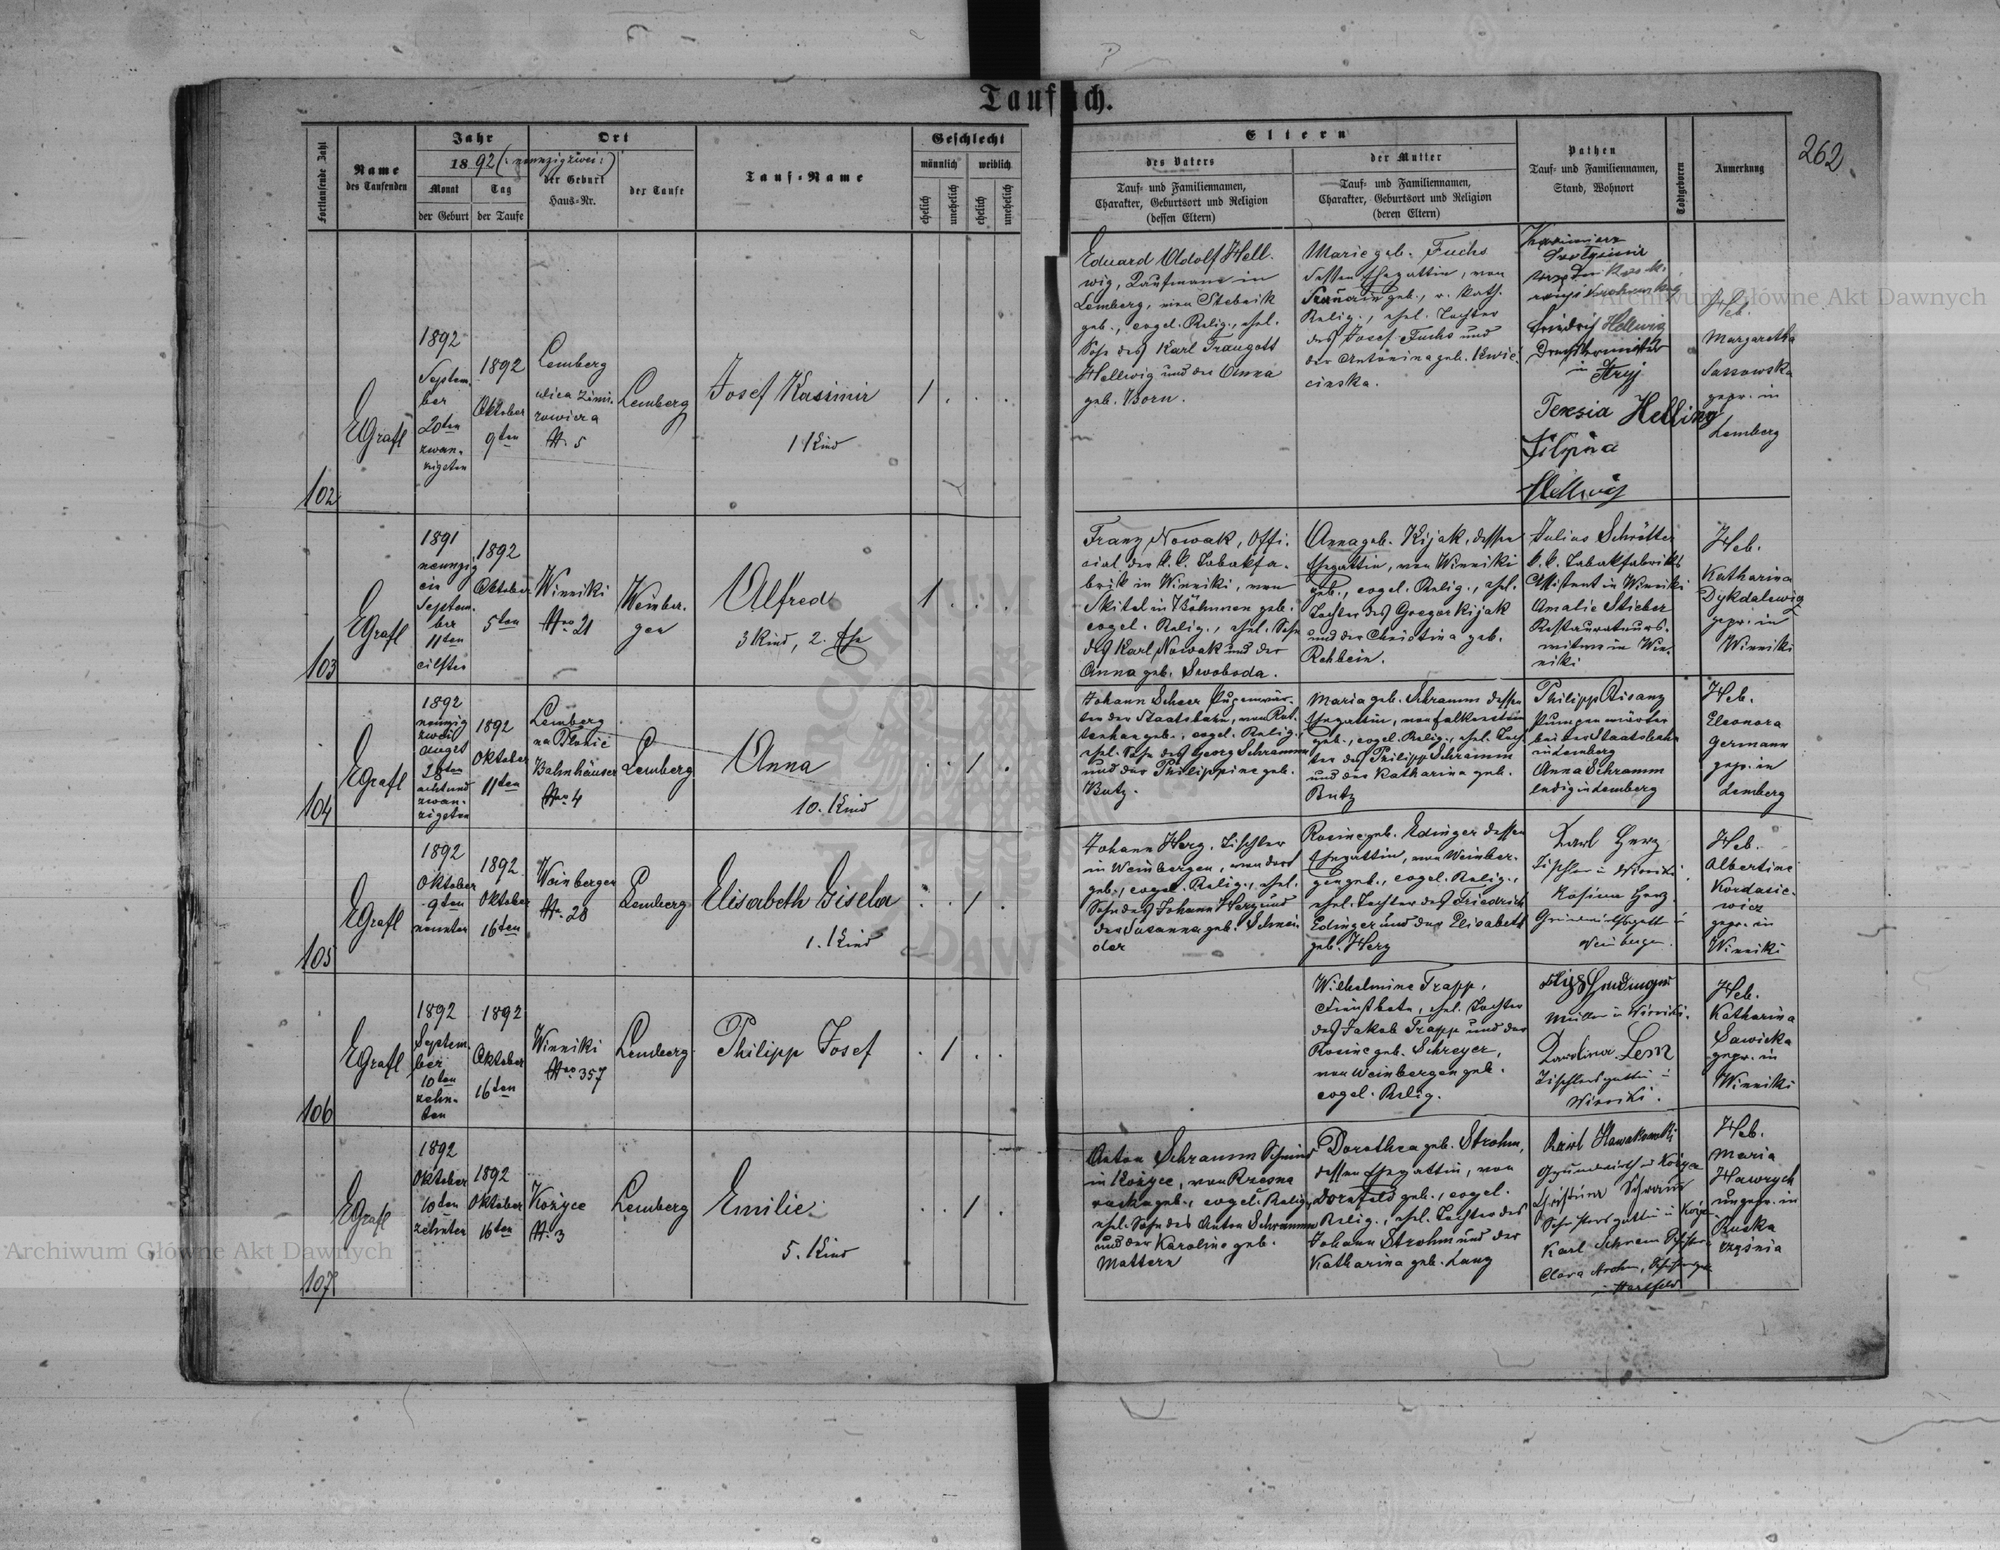 Taufbuch.
262
Fortlaufende Zahl
Name
des Taufenden
Jahr
1892 (: neunzigzwei :)
Monat
der Geburt
Tag
der Taufe
Ort
der Geburt
Haus-Nr.
der Taufe
Tauf-Name
Geschlecht
männlich
weiblich
ehelich
unehelich
ehelich
unehelich
Eltern
des Vaters
Tauf- und Familiennamen,
Charakter, Geburtsort und Religion
(dessen Eltern)
der Mutter
Tauf- und Familiennamen,
Charakter, Geburtsort und Religion
(deren Eltern)
Pathen
Tauf- und Familiennamen,
Stand, Wohnort
Todtgeboren
Anmerkung
102
EGrafl
1892
Septem-
ber
20ten
zwan-
zigsten
1892
Oktober
9ten
Lemberg
ulica Zimi-
rowicza
N. 5
Lemberg
Josef Kasimir
1 Kind
1
Eduard Adolf Hell-
wig, Kaufmann in
Lemberg, von Stebnik
geb., evgel. Relig., ehel.
Sohn des Karl Traugott
Hellwig und der Anna
geb. Born.
Marie geb. Fuchs
dessen Ehegattin, von
geb., r. kath.
Relig., ehel. Tochter
des Josef Fuchs und
der Antonina geb. Kwie-
cinska.
Friedrich Hellwig
in Stryj
Teresia Helling
Filipina
Hellwig
Heb.
Margaretha
Sassowska
gepr. in
Lemberg
103
EGrafl
1891
neunzig
ein
Septem-
ber
11ten
eilften
1892
Oktober
5ten
Winniki
Nro 21
Weinber-
gen
Alfred
3 Kind, 2. Ehe
1
Franz Nowak, Offi-
cial der k.k. Tabakfa-
brik in Winniki, von
Skitel in Böhmen geb.
evgel. Relig., ehel. Sohn
des Karl Nowak und der
Anna geb. Swoboda.
Anna geb. Kijak, dessen
Ehegattin, von Winniki
geb., evgel. Relig., ehel.
Tochter des Gregor Kijak
und der Christina geb.
Rehbein.
Julius Schrötter
k.k. Tabakfabriks
Assistent in Winniki
Amalie Stieber
Restaurateurs-
witwe in Win-
niki
Heb.
Katharina
Dykdalewicz
gepr. in
Winniki
104
EGrafl
1892
neunzig
zwei
August
28ten
achtund
zwan-
zigsten
1892
Oktober
11ten
Lemberg
na Błonie
Bahnhäuser
Nro 4
Lemberg
Anna
10. Kind
1
Johann Scheer Pumpenwär-
ter der Staatsbahn, von
geb., evgel. Relig.
ehel. Sohn des Georg Schramm
und der Philippine geb.
Butz.
Maria geb. Schramm dessen
Ehegattin, von Falkenstein
geb., evgel. Relig., ehel. Toch-
ter des Philipp Schramm
und der Katharina geb.
Butz
Philipp Bisanz
Pumpenwärter
bei der Staatsbahn
in Lemberg
Anna Schramm
ledig in Lemberg
Heb.
Eleonora
Germann
gepr. in
Lemberg
105
EGrafl
1892
Oktober
9ten
neunter
1892
Oktober
16ten
Weinbergen
N. 28
Lemberg
Elisabeth Gisela
1. Kind
1
Johann Herz, Tischler
in Weinbergen, von dort
geb., evgel. Relig., ehel.
Sohn des Johann Herz und
der Susanna geb. Schnei-
der
Rosine geb. Edinger dessen
Ehegattin, von Weinber-
gen geb., evgel. Relig.,
ehel. Tochter des Friedrich
Edinger und der Elisabeth
geb. Herz
Karl Herz
Tischler in Winniki
Rosina Herz
Grundwirthsgattin in
Weinbergen.
Heb.
Albertine
Kordasie-
wicz
gepr. in
Winniki
106
EGrafl
1892
Septem-
ber
10ten
zehn-
ten
1892
Oktober
16ten
Winniki
Nro 357
Lemberg
Philipp Josef
1
Wilhelmine Trapp,
Dienstbote, ehel. Tochter
des Jakob Trapp und der
Rosine geb. Schreyer,
von Weinbergen geb.
evgel. Relig.
Müller in Winniki.
Karolina Lem
Tischlersgattin in
Winniki.
Heb.
Katharina
Sawicka
gepr. in
Winniki
107
EGrafl
1892
Oktober
10ten
zehnten
1892
Oktober
16ten
Kożyce
N. 3
Lemberg
Emilie
5. Kind
1
Anton Schramm Schmied
in Kożyce, von Rzesna
ruska geb., evgel. Relig.,
ehel. Sohn des Anton Schramm
und der Karoline geb.
Mattern
Dorothea geb. Strohm,
dessen Ehegattin, von
Dornfeld geb., evgel.
Relig., ehel. Tochter des
Johann Strohm und der
Katharina geb. Lang
Grundwirth in Kożyce
Christina Schramm
Karl Schramm
Clara
Hartfeld
Heb.
Maria
Hawrych
ungepr. in
Ruska
rzęśnia
Archiwum Główne Akt Dawnych
Archiwum Główne Akt Dawnych